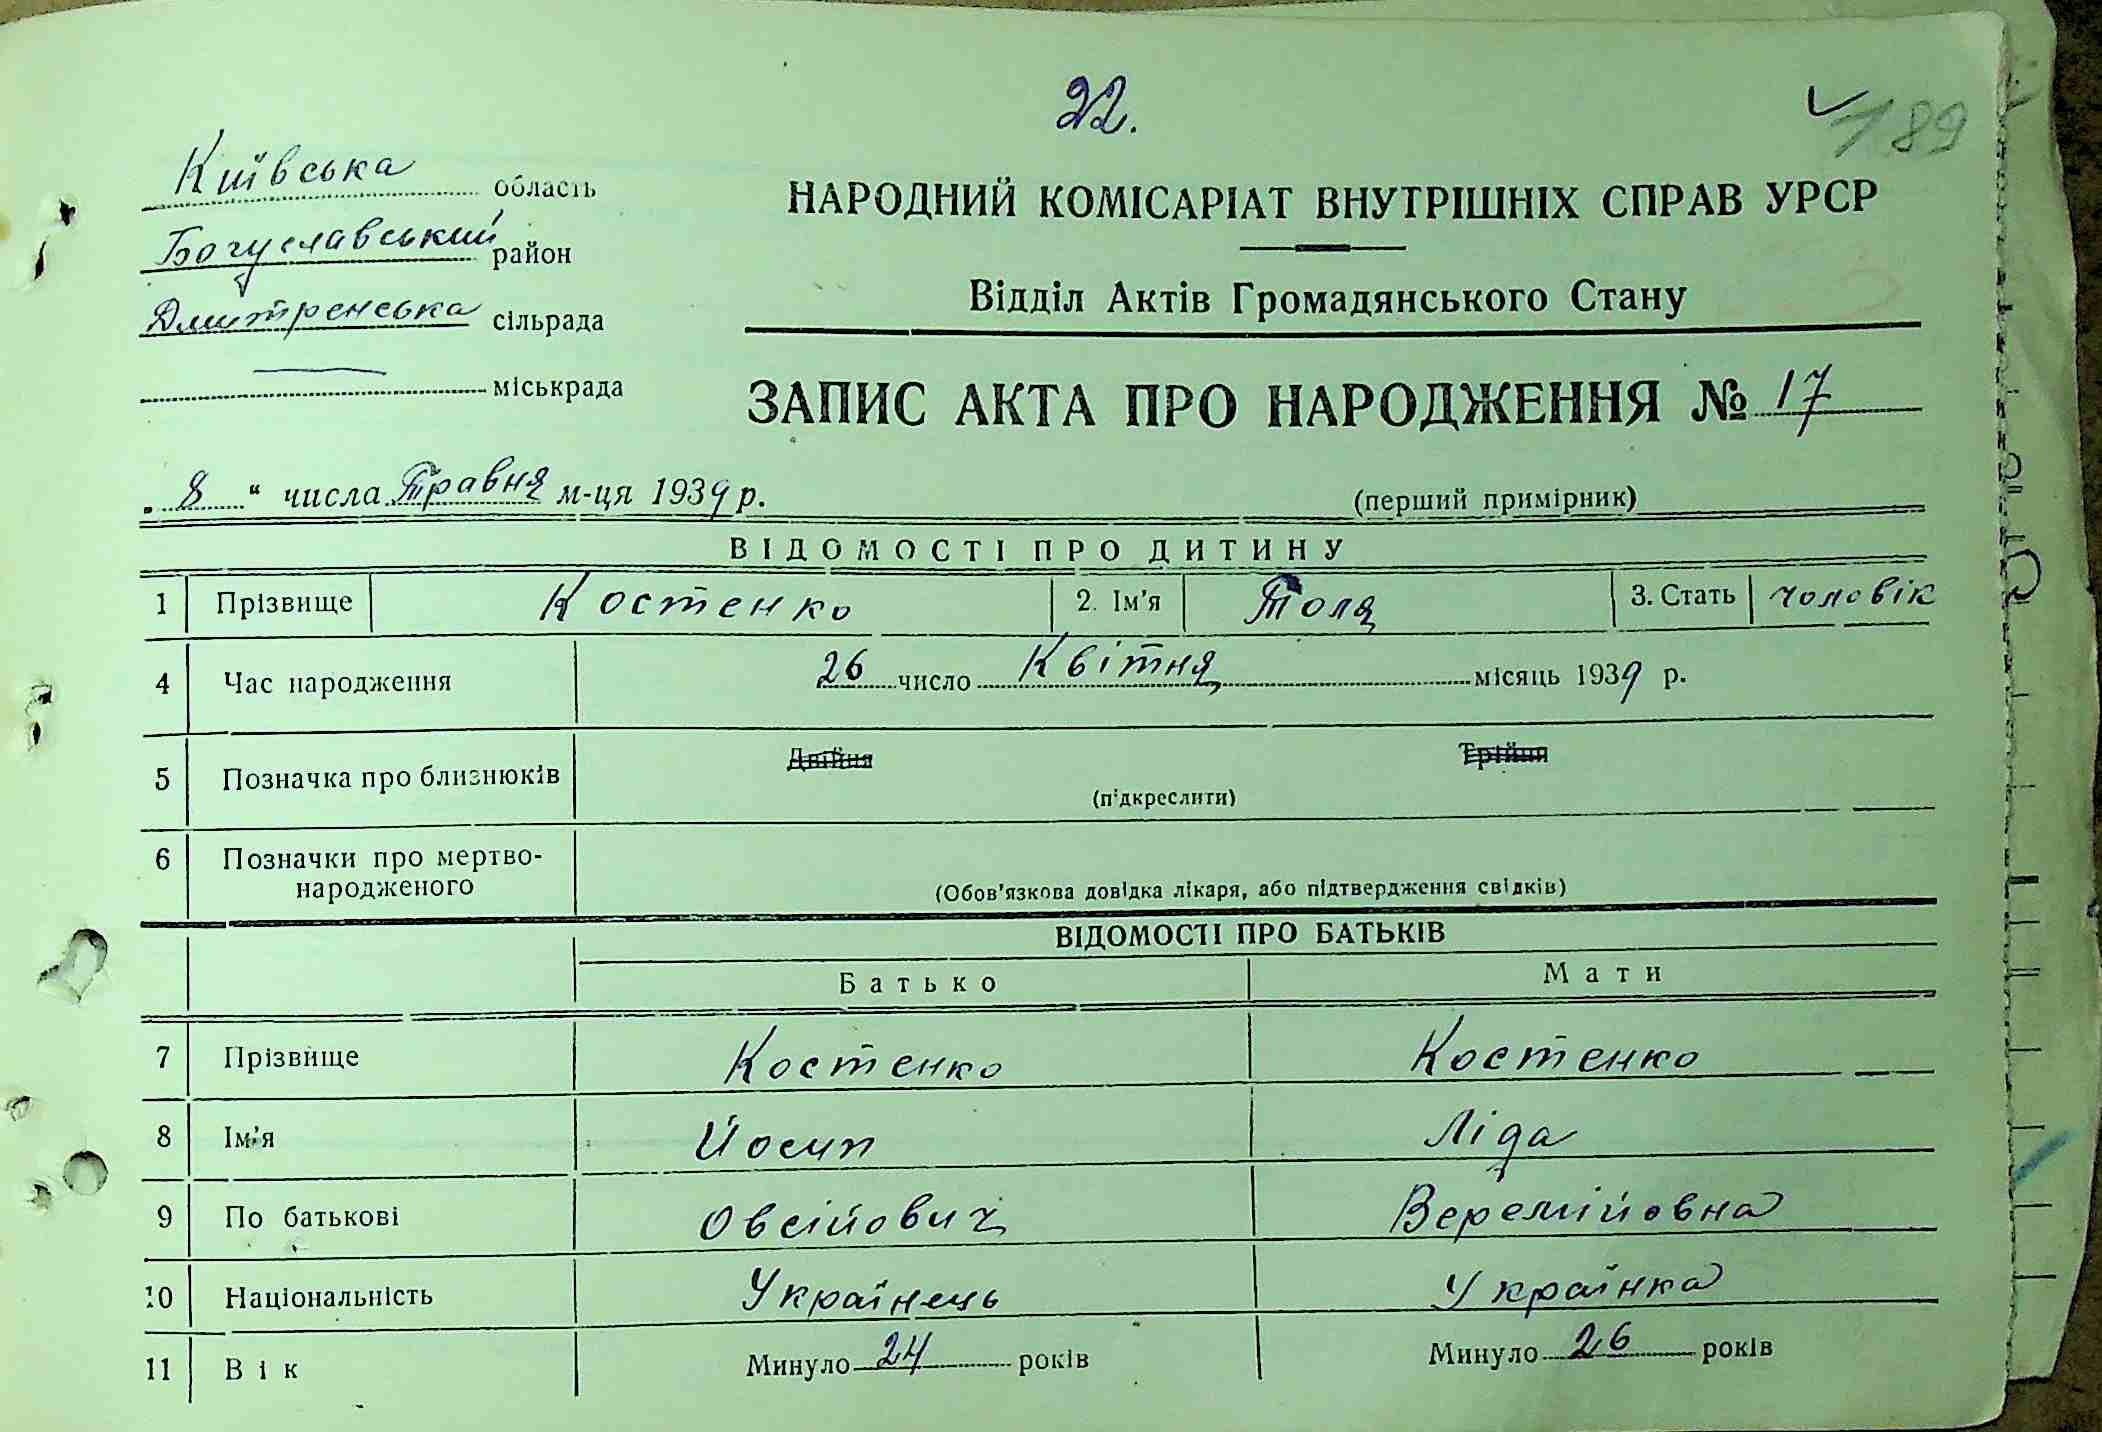 22.
189
Київська область
Богуславський район
Дмитренська сільрада
міськрада
НАРОДНИЙ КОМІСАРІАТ ВНУТРІШНІХ СПРАВ УРСР
Відділ Актів Громадянського Стану
ЗАПИС АКТА ПРО НАРОДЖЕННЯ № 17
„ 8 “ числа Травня м-ця 1939 р.
(перший примірник)
ВІДОМОСТІ ПРО ДИТИНУ
1 Прізвище Костенко 2. Ім'я Толя 3. Стать чоловік
4 Час народження 26 число Квітня місяць 1939 р.
5 Позначка про близнюків Двійня Трійня
(підкреслити)
6 Позначки про мертво-
народженого (Обов'язкова довідка лікаря, або підтвердження свідків)
ВІДОМОСТІ ПРО БАТЬКІВ
Батько Мати
7 Прізвище Костенко Костенко
8 Ім'я Йосип Ліда
9 По батькові Овсійович Веремійовна
10 Національність Українець Українка
11 Вік Минуло 24 років Минуло 26 років